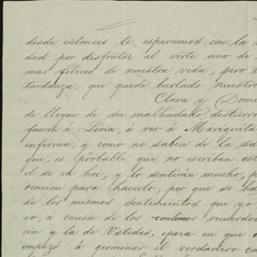 desde entonces te esperamos con la
dad por disfrutar al verte uno de
mas felices de nuestra vida, pero
tardanza, que quede burlado nuestro
Clara y Dome
de llegar de su malhadado destierro
fueron á Lima, á ver á Mariquita
enferma, y como no saben de la sa
que, es probable que no escriban est
él se va hoi; y lo sentirán mucho, p
oracion para hacerlo, por que se ha
de los mismos sentimientos que yo
vo, á causa de los recuerdos
cin y la de Ustedes, epoca en que
empezó á germinar el verdadero ca